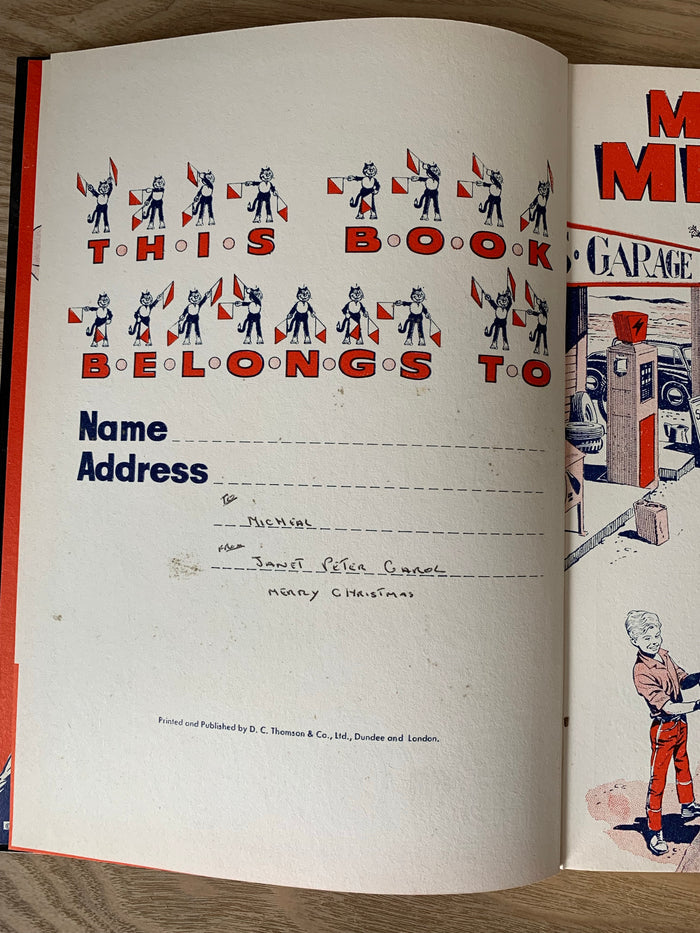 T·H·I·S B·O·O·K
B·E·L·O·N·G·S T·O
Name
Address
To
Micheal
From
Janet Peter Carol
Merry Christmas
Printed and Published by D. C. Thomson & Co., Ltd., Dundee and London.
M
ME
S· GARAGE